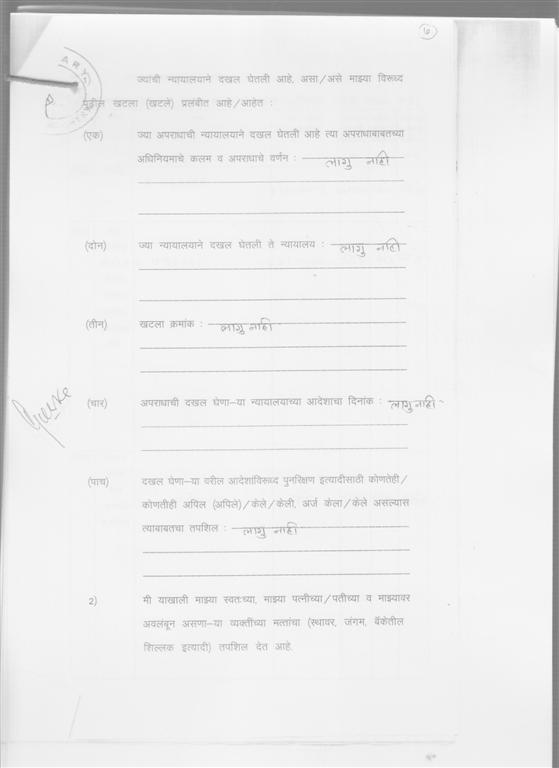 ७
ARY
ज्यांची न्यायालयाने दखल घेतली आहे, असा/असे माझ्या विरूध्द
पुढील खटला (खटले) प्रलंबीत आहे/आहेत :
(एक) ज्या अपराधाची न्यायालयाने दखल घेतली आहे त्या अपराधाबाबतच्या
अधिनियमाचे कलम व अपराधाचे वर्णन : लागु नाही
(दोन) ज्या न्यायालयाने दखल घेतली ते न्यायालय : लागु नाही
(तीन) खटला क्रमांक : लागु नाही
(चार) अपराधाची दखल घेणा–या न्यायालयाच्या आदेशाचा दिनांक : लागु नाही
(पाच) दखल घेणा–या वरील आदेशांविरूध्द पुनरिक्षण इत्यादीसाठी कोणतेही/
कोणतीही अपिल (अपिले)/केले/केली, अर्ज केला/केले असल्यास
त्याबाबतचा तपशिल : लागु नाही
2) मी याखाली माझ्या स्वतःच्या, माझ्या पत्नीच्या/पतीच्या व माझ्यावर
अवलंबून असणा–या व्यक्तींच्या मत्तांचा (स्थावर, जंगम, बॅंकेतील
शिल्लक इत्यादी) तपशिल देत आहे.